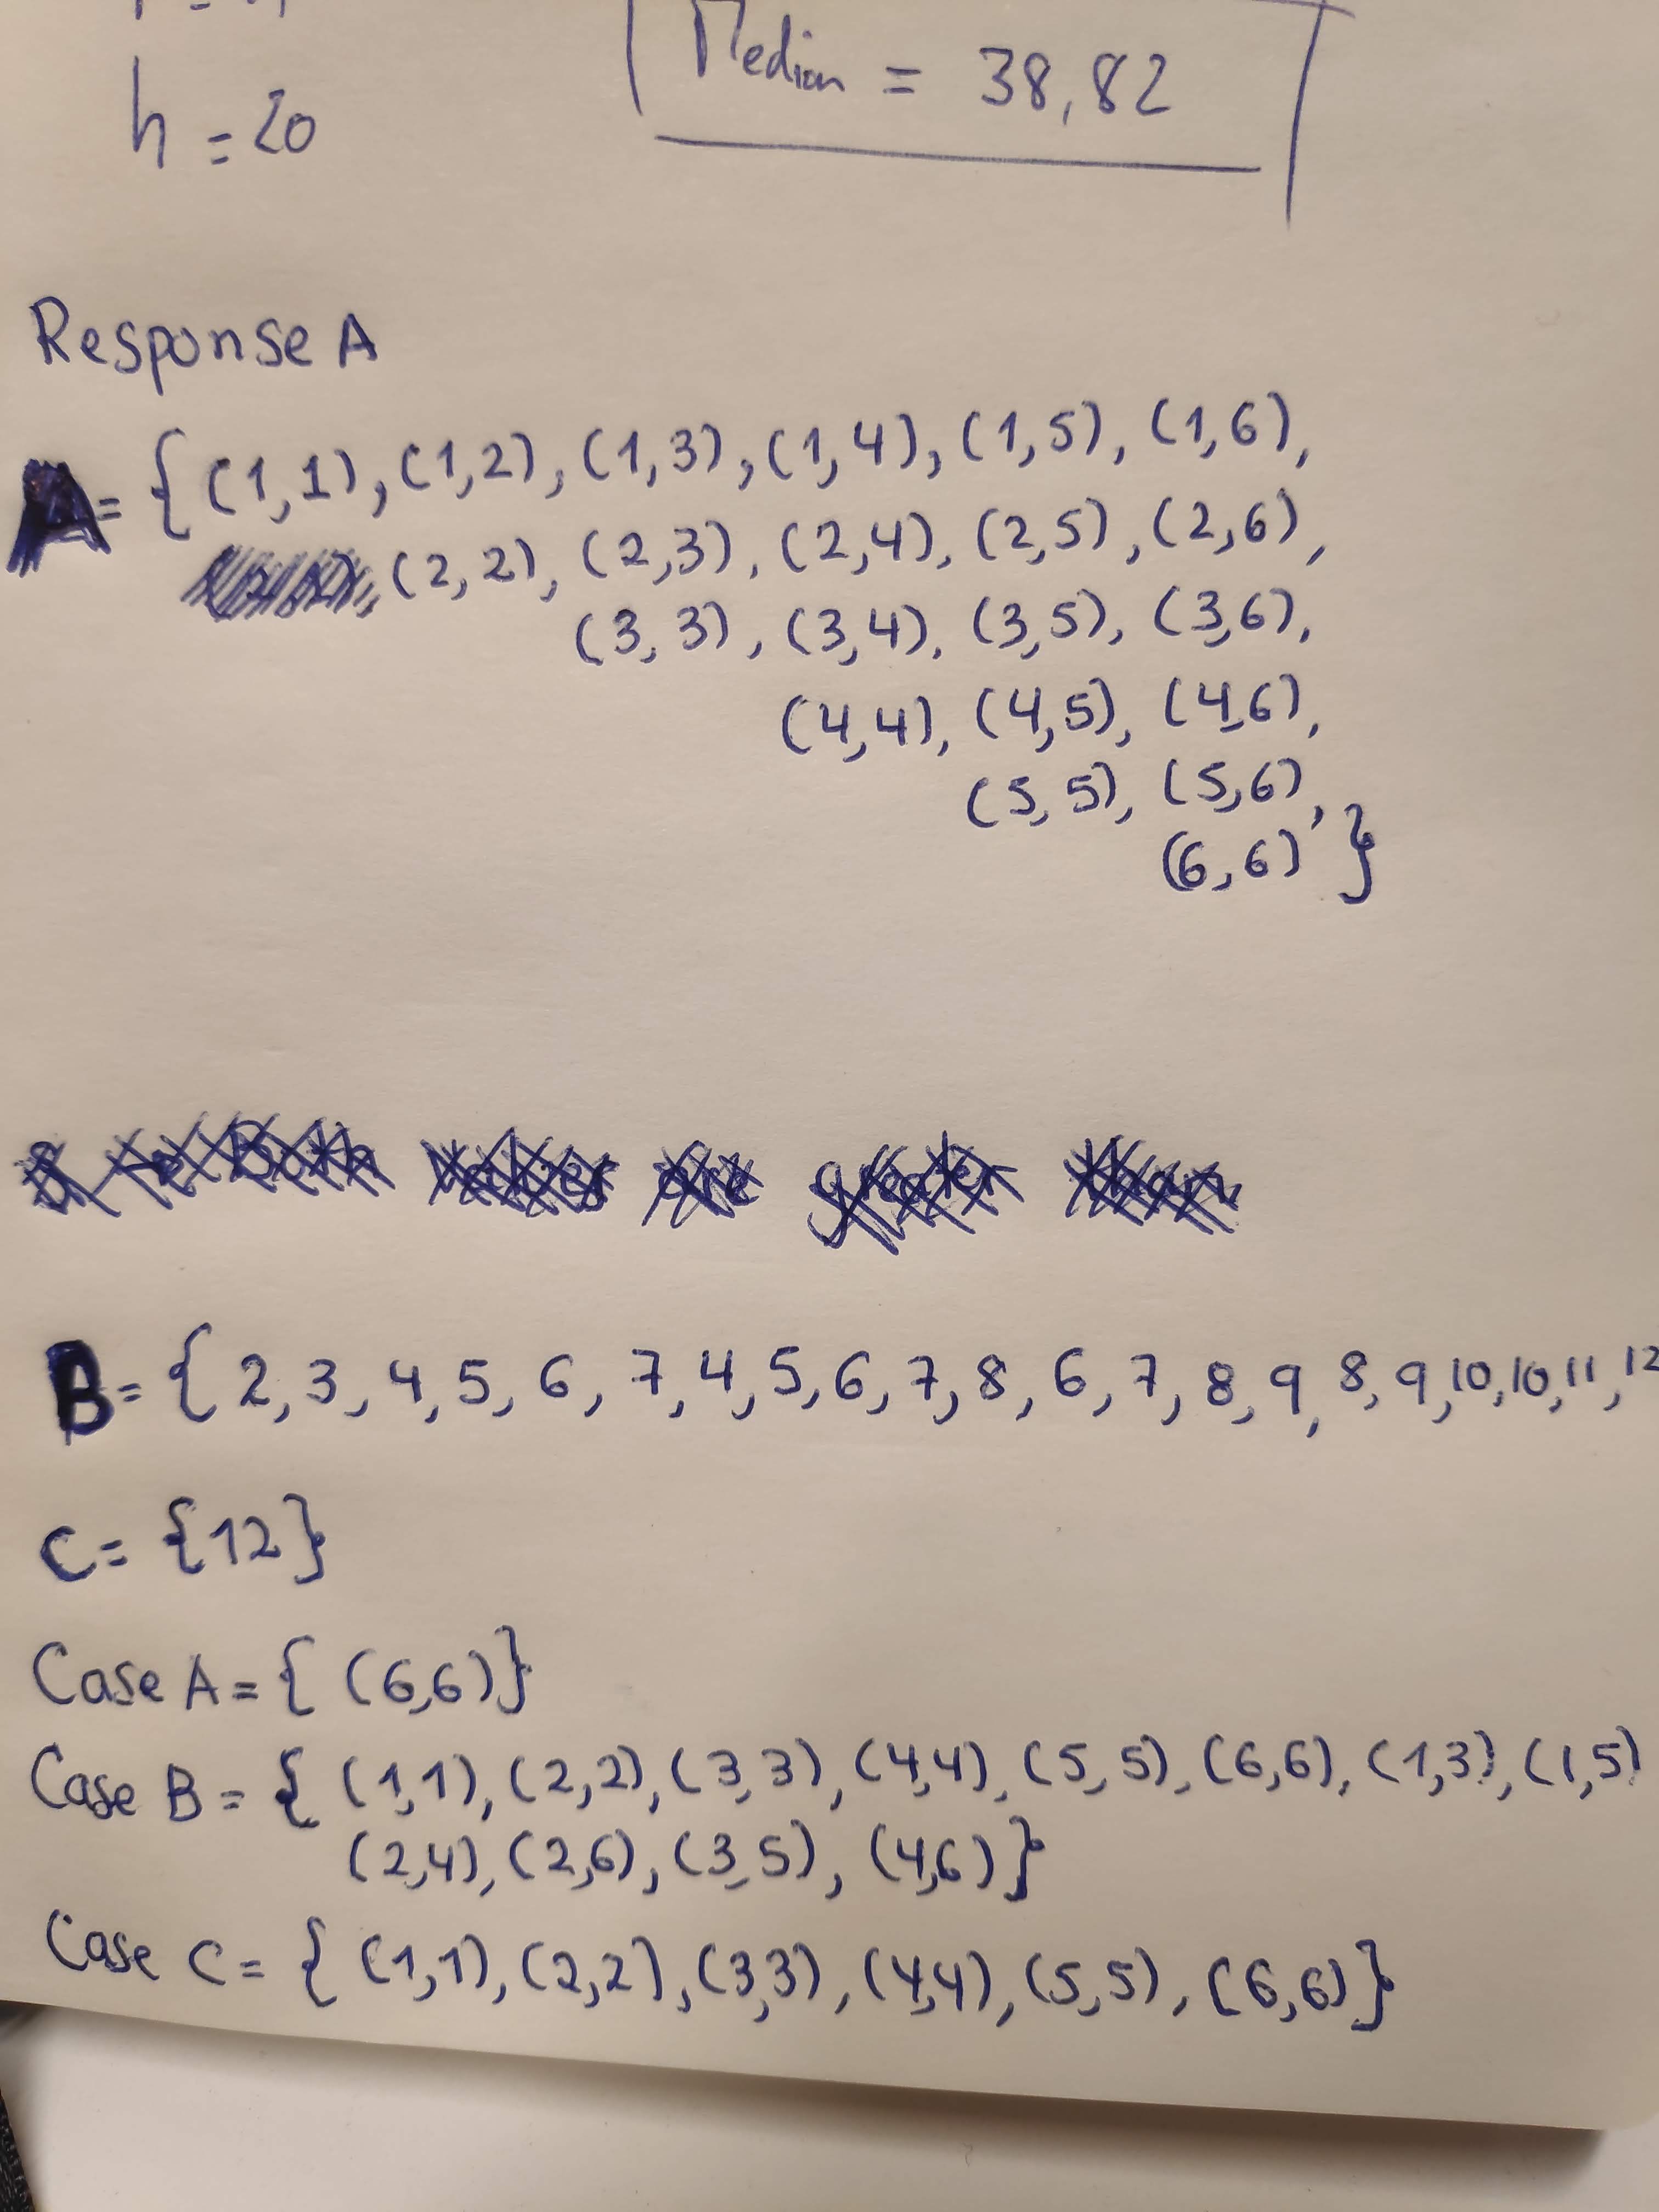 h = 20
Median = 38,82
Response A
A = { (1,1), (1,2), (1,3), (1,4), (1,5), (1,6),
(2,2), (2,3), (2,4), (2,5), (2,6),
(3,3), (3,4), (3,5), (3,6),
(4,4), (4,5), (4,6),
(5,5), (5,6),
(6,6) }
B = { 2, 3, 4, 5, 6, 7, 4, 5, 6, 7, 8, 6, 7, 8, 9, 8, 9, 10, 10, 11, 12
C = {12}
Case A = { (6,6)}
Case B = { (1,1), (2,2), (3,3), (4,4), (5,5), (6,6), (1,3), (1,5)
(2,4), (2,6), (3,5), (4,6)}
Case C = { (1,1), (2,2), (3,3), (4,4), (5,5), (6,6)}